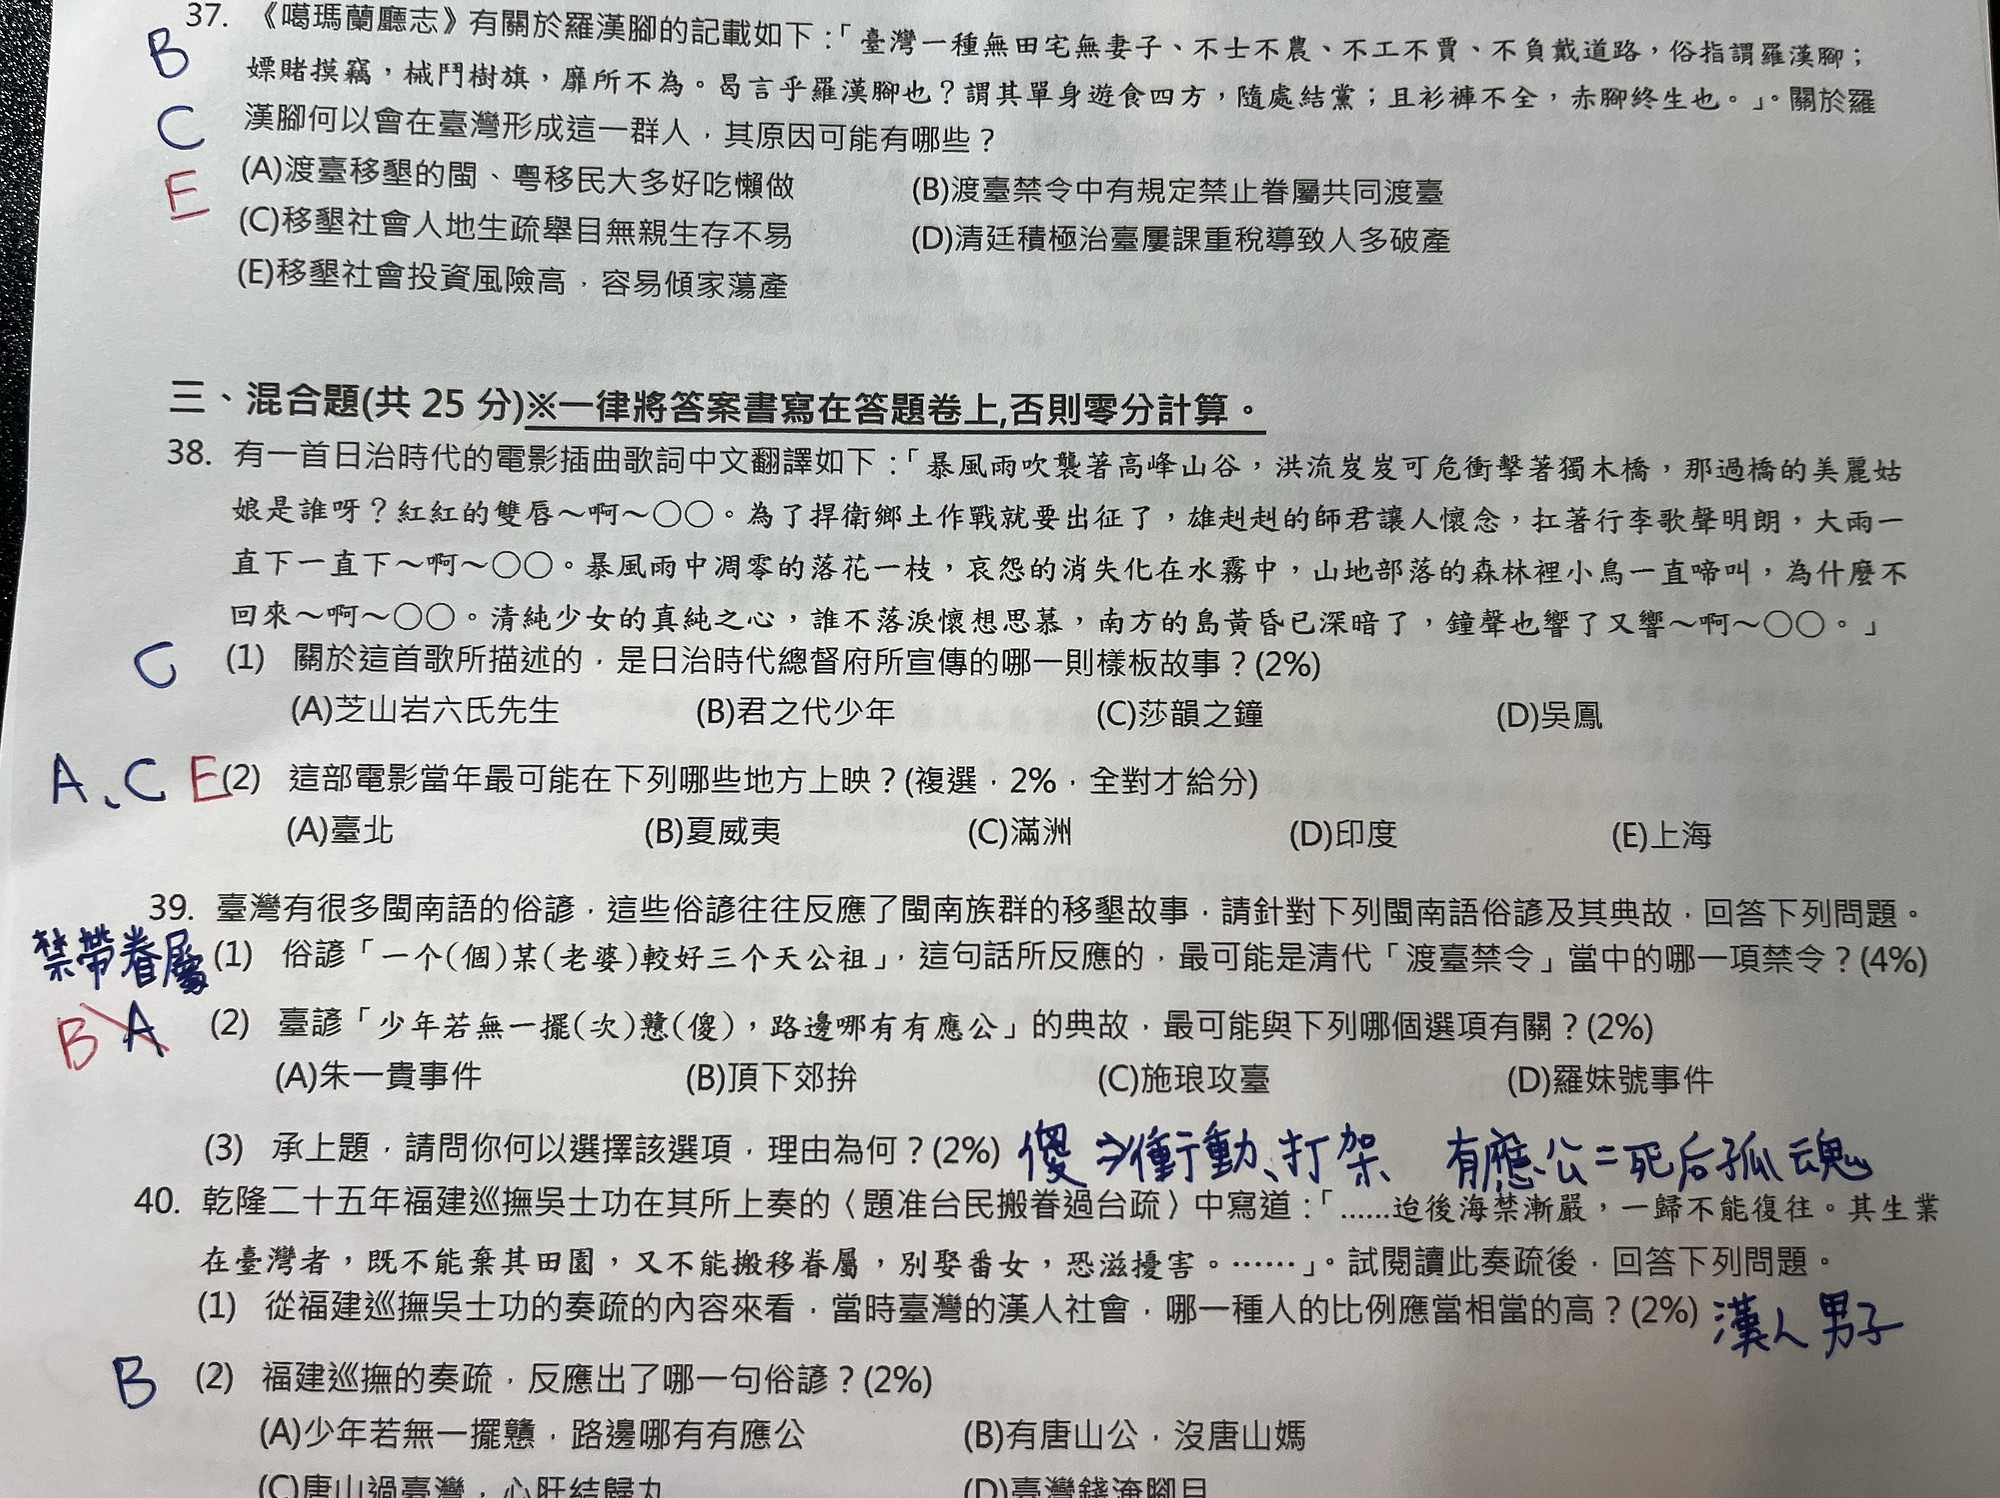 37. 《噶瑪蘭廳志》有關於羅漢腳的記載如下:「臺灣一種無田宅無妻子、不士不農、不工不賈、不負戴道路，俗指謂羅漢腳；
B 嫖賭摸竊，械鬥樹旗，靡所不為。曷言乎羅漢腳也？謂其單身遊食四方，隨處結黨；且衫褲不全，赤腳終生也。」。關於羅
C 漢腳何以會在臺灣形成這一群人，其原因可能有哪些？
E (A)渡臺移墾的閩、粵移民大多好吃懶做 (B)渡臺禁令中有規定禁止眷屬共同渡臺
(C)移墾社會人地生疏舉目無親生存不易 (D)清廷積極治臺屢課重稅導致人多破產
(E)移墾社會投資風險高，容易傾家蕩產
三、混合題(共 25 分)※一律將答案書寫在答題卷上,否則零分計算。
38. 有一首日治時代的電影插曲歌詞中文翻譯如下:「暴風雨吹襲著高峰山谷，洪流岌岌可危衝擊著獨木橋，那過橋的美麗姑
娘是誰呀？紅紅的雙唇～啊～○○。為了捍衛鄉土作戰就要出征了，雄赳赳的師君讓人懷念，扛著行李歌聲明朗，大雨一
直下一直下～啊～○○。暴風雨中凋零的落花一枝，哀怨的消失化在水霧中，山地部落的森林裡小鳥一直啼叫，為什麼不
回來～啊～○○。清純少女的真純之心，誰不落淚懷想思慕，南方的島黃昏已深暗了，鐘聲也響了又響～啊～○○。」
C (1) 關於這首歌所描述的，是日治時代總督府所宣傳的哪一則樣板故事？(2%)
(A)芝山岩六氏先生 (B)君之代少年 (C)莎韻之鐘 (D)吳鳳
A、C E (2) 這部電影當年最可能在下列哪些地方上映？(複選，2%，全對才給分)
(A)臺北 (B)夏威夷 (C)滿洲 (D)印度 (E)上海
39. 臺灣有很多閩南語的俗諺，這些俗諺往往反應了閩南族群的移墾故事，請針對下列閩南語俗諺及其典故，回答下列問題。
禁帶眷屬 (1) 俗諺「一个(個)某(老婆)較好三个天公祖」，這句話所反應的，最可能是清代「渡臺禁令」當中的哪一項禁令？(4%)
B A (2) 臺諺「少年若無一擺(次)戇(傻)，路邊哪有有應公」的典故，最可能與下列哪個選項有關？(2%)
(A)朱一貴事件 (B)頂下郊拚 (C)施琅攻臺 (D)羅妹號事件
(3) 承上題，請問你何以選擇該選項，理由為何？(2%) 傻⇒衝動、打架 有應公=死后孤魂
40. 乾隆二十五年福建巡撫吳士功在其所上奏的〈題准台民搬眷過台疏〉中寫道:「……迨後海禁漸嚴，一歸不能復往。其生業
在臺灣者，既不能棄其田園，又不能搬移眷屬，別娶番女，恐滋擾害。……」。試閱讀此奏疏後，回答下列問題。
(1) 從福建巡撫吳士功的奏疏的內容來看，當時臺灣的漢人社會，哪一種人的比例應當相當的高？(2%) 漢人男子
B (2) 福建巡撫的奏疏，反應出了哪一句俗諺？(2%)
(A)少年若無一擺戇，路邊哪有有應公 (B)有唐山公，沒唐山媽
(C)唐山過臺灣，心肝結歸丸 (D)臺灣錢淹腳目